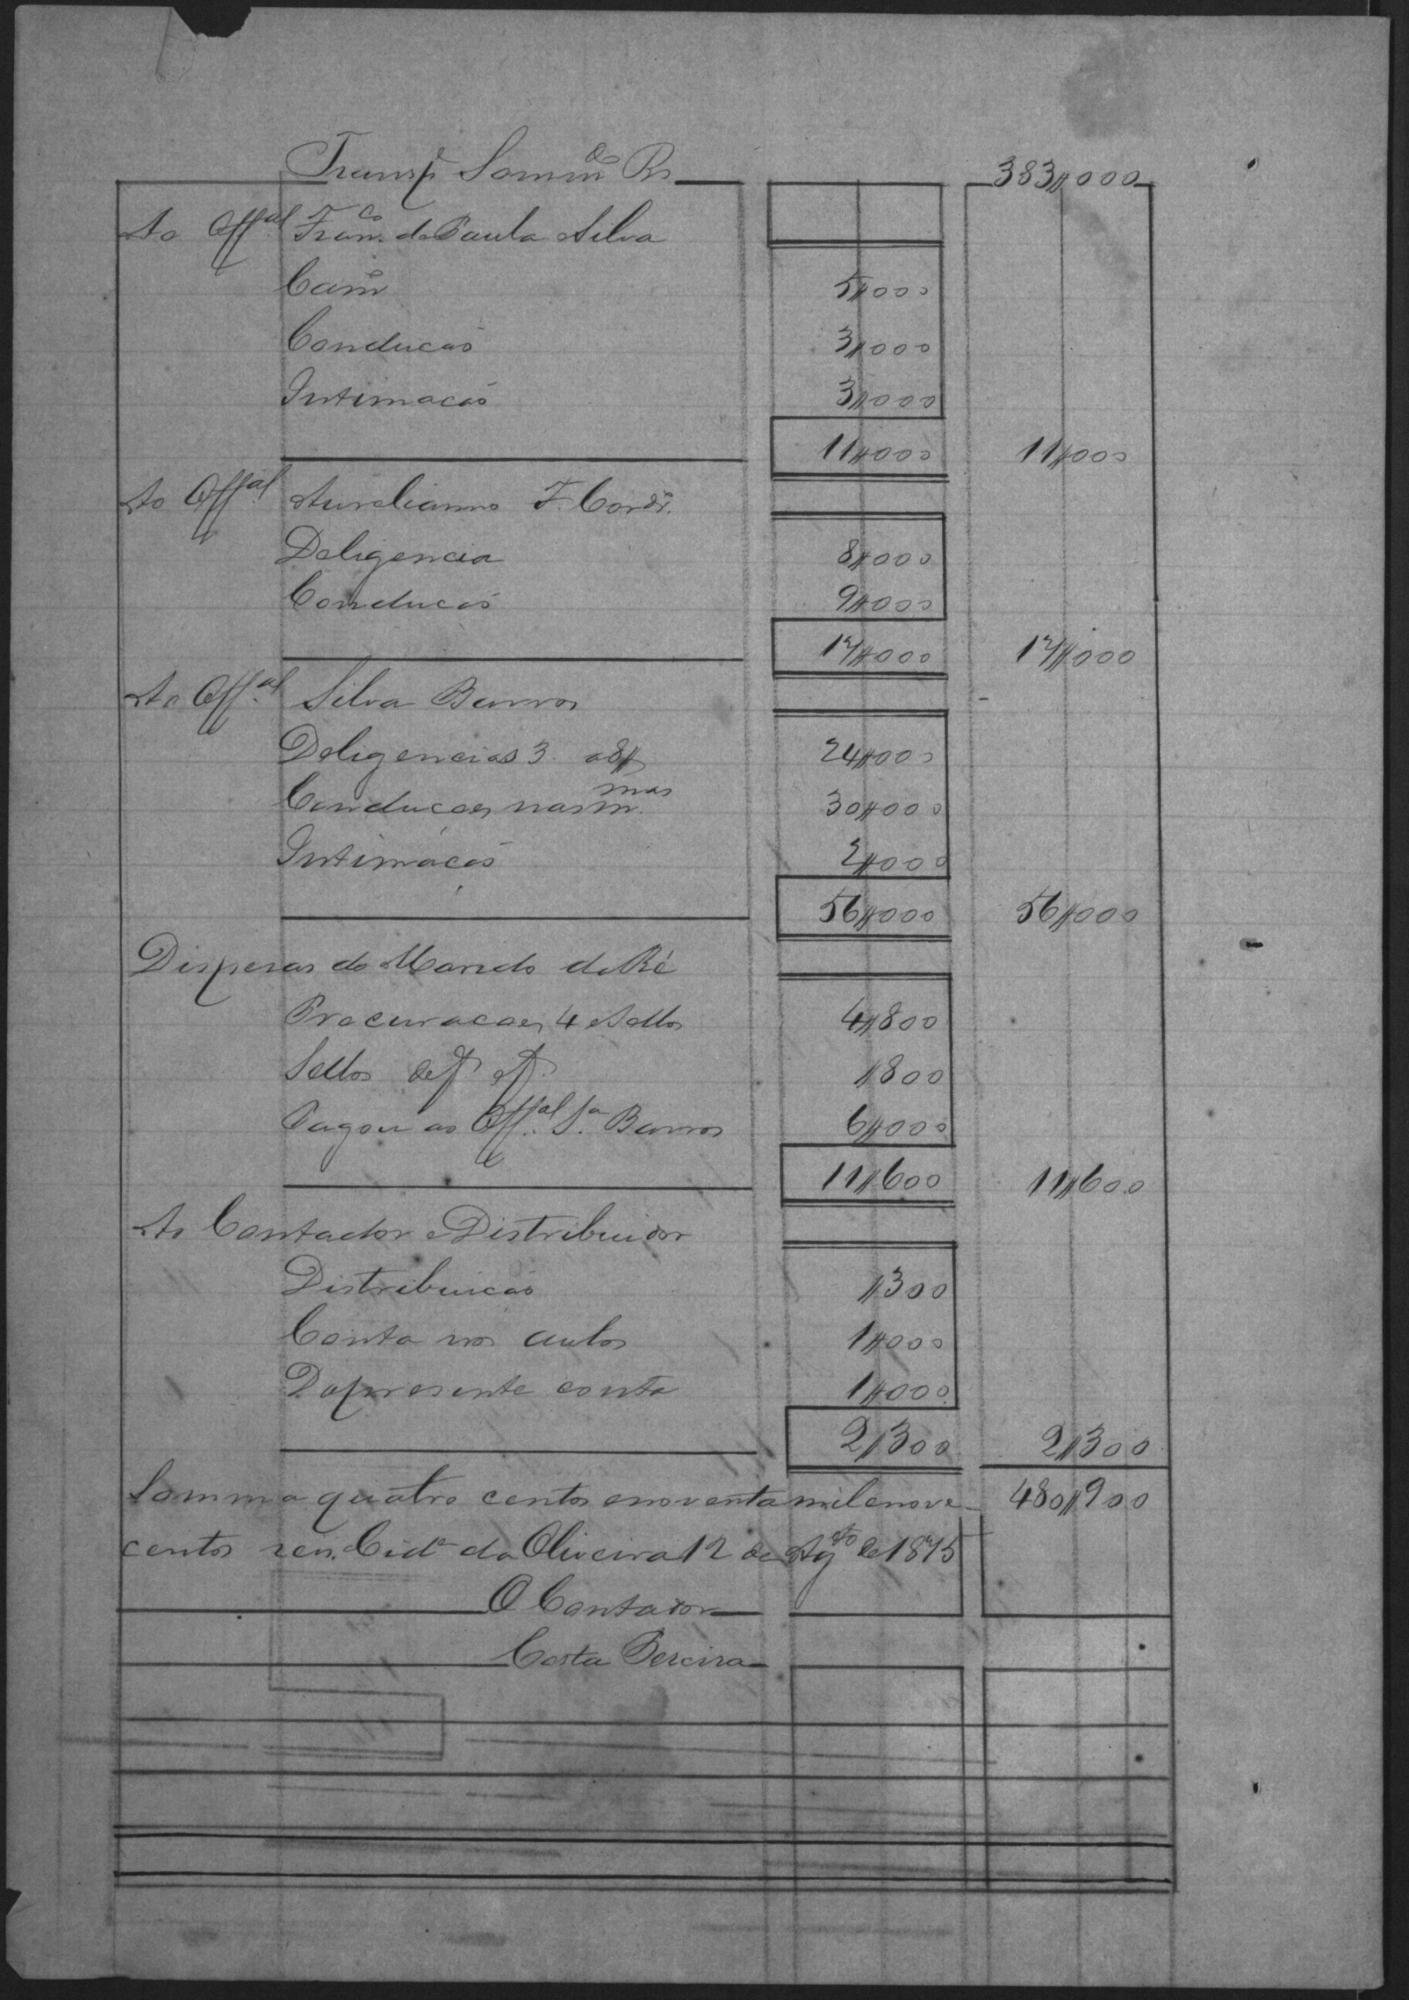 Transp.e Sommdo Rs 383,,000
Ao Offal Franco de Paula Silva
Camo 5,,000
Conducao 3,,000
Intimacao 3,,000
11,,000 11,,000
Ao Offal Aurelianno F. Cordr.o
Deligencia 8,,000
Conducao 9,,000
17,,000 17,,000
Ao Offal Silva Barros
Deligencias 3 a 8,, 24,,000
Conducoes nas mmas 30,,000
Intimacao 2,,000
56,,000 56,,000
Dispesas do Marido da Ré
Procuracoes, 4 e Sellos 4,,800
Sellos de f. f. ,,800
Pagou ao Offal Sa Barros 6,,000
11,,600 11,,600
Ao Contador e Distribuidor
Distribuicao ,,300
Conta nos autos 1,,000
Da presente conta 1,,000
2,,300 2,,300
Somma quatro centos e noventa mil e nove 480,,900
centos reis. Cide da Oliveira 12 de Agto de 1875
O Contador
Costa Pereira